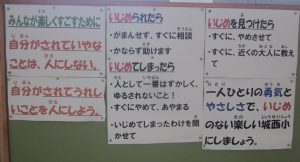 みんなが楽しくすごすために
自分がされていやな
ことは、人にしない。
自分がされてうれし
いことを人にしよう。
いじめられたら
・がまんせず、すぐに相談
・かならず助けます
いじめてしまったら
・人として一番はずかしく、
ゆるされないこと!
・すぐにやめて、あやまる
・いじめてしまったわけを聞
かせて
いじめを見つけたら
・すぐに、やめさせて
・すぐに、近くの大人に教え
て
一人ひとりの勇気と
やさしさで、いじめ
のない楽しい城西小
にしましょう。